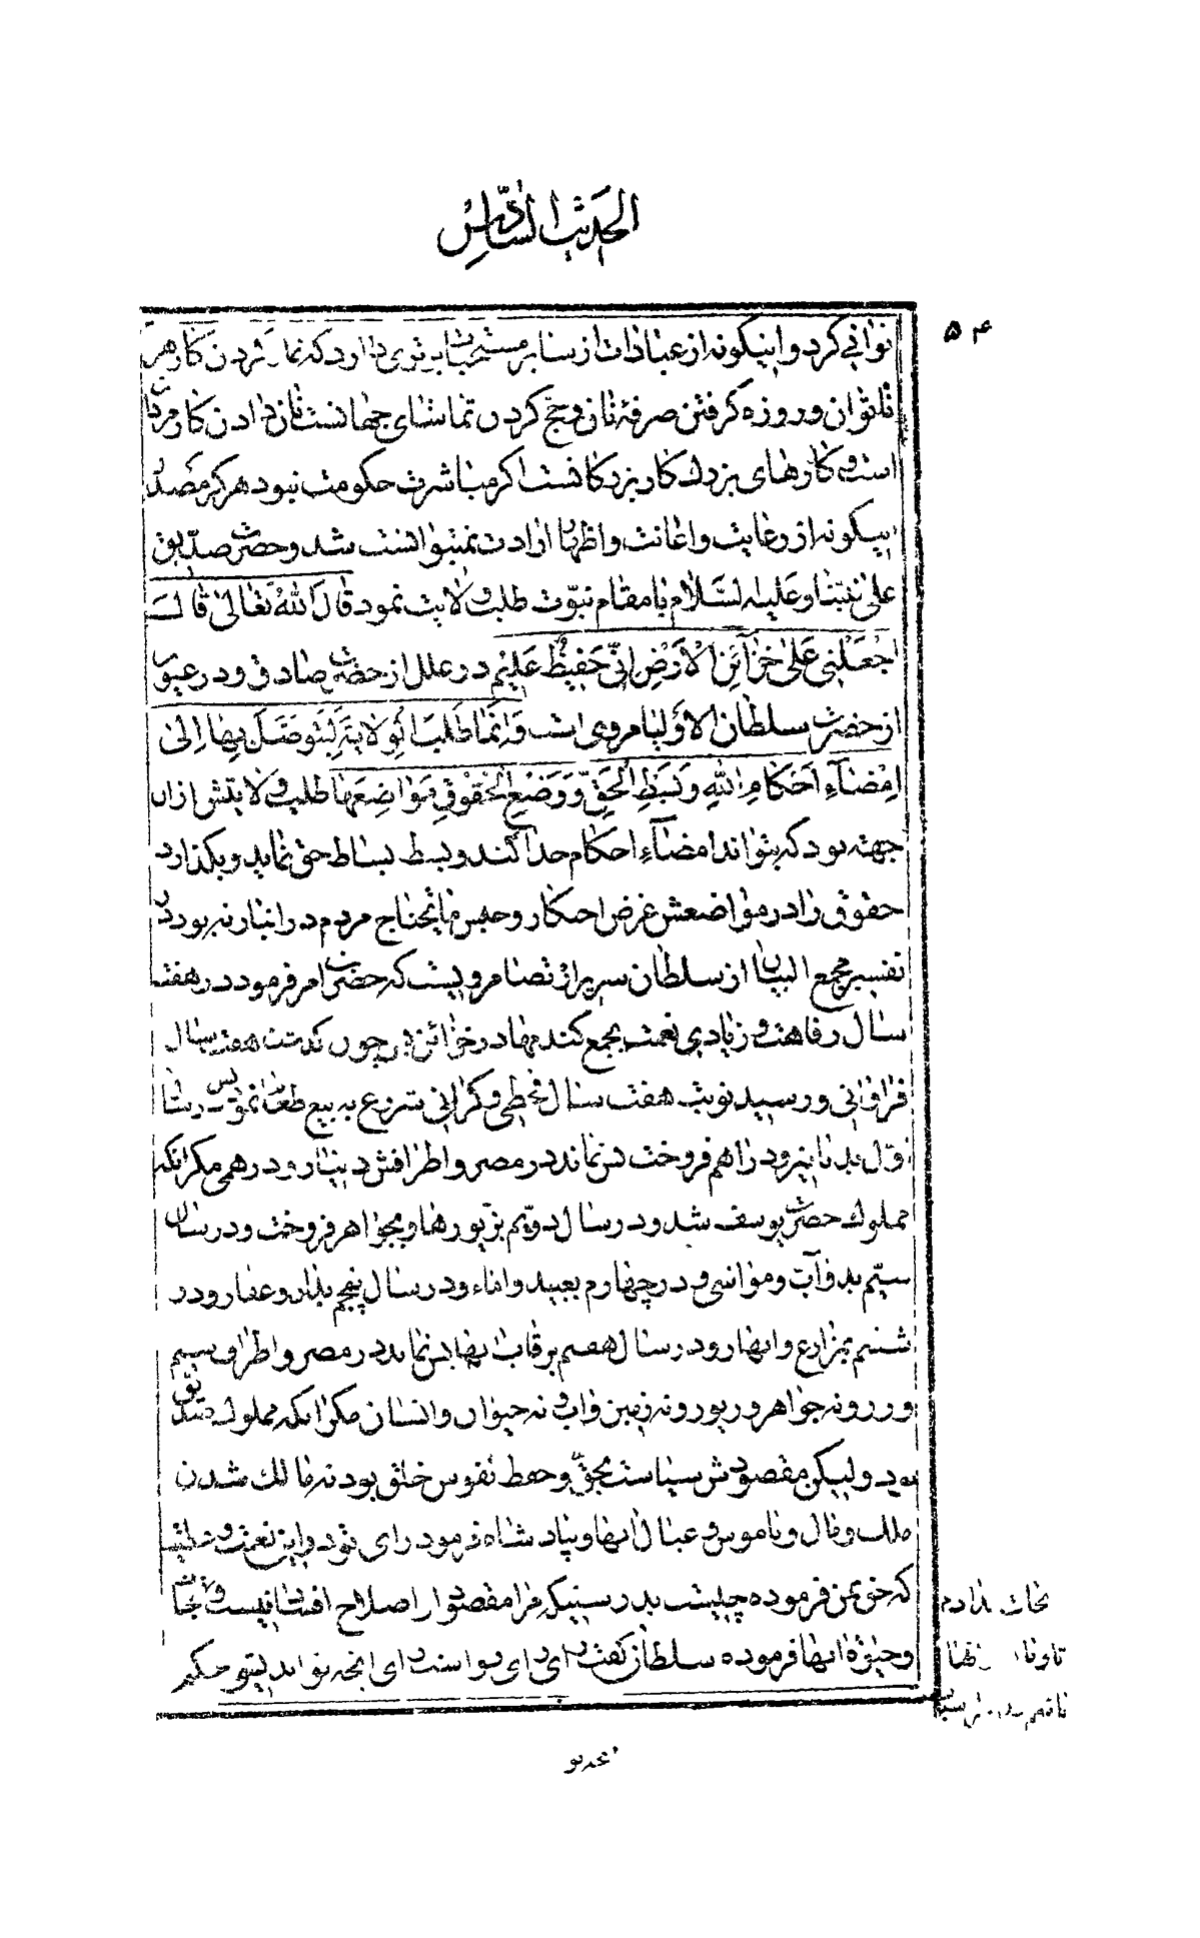 الحدیث السّادس
۵۴
توانی کرد و اینگونه از عبادات از سایر مستحبات برتری دارد که نماز کردن کار هر
ناتوان و روزه گرفتن صرفهٔ نان و حج کردن تماشای جهانست نان دادن کار مردان
است و کارهای بزرگ کار بزرگانست اگر مباشرت حکومت نبود هرگز مصدر
اینگونه از رعایت و اعانت و اظهار ارادت نمیتوانست شد و حضرت صدّیق
علی نبیّنا و علیه السّلام با مقام نبوّت طلب ولایت نمود قال الله تعالی قال
اجْعَلْنِی عَلی خَزآئِنِ الْاَرْضِ اِنّی حَفیظٌ عَلیمٌ در علل از حضرت صادق و در عیون
از حضرت سلطان الاولیا مرویست وَاِنَّما طَلَبَ الْوِلایَةَ لِیَتَوَصَّلَ بِها اِلی
اِمْضآءِ اَحْکامِ اللّهِ وَ بَسْطِ الْحَقِّ وَ وَضْعِ الْحُقُوقِ مَواضِعَها طلب ولایتش ازان
جهته بود که بتواند امضآء احکام خدا کند و بسط بساط حق نماید و بگذارد
حقوق را در مواضعش غرض احتکار و حبس ما یحتاج مردم در انبار نه بود در
تفسیر مجمع البیان از سلطان سریر ارتضا مرویست که حضرت امر فرمود در هفت
سال رفاهت و زیادی نعمت بجمع گندمها در خزائن و چون گذشت هفت سال
فراوانی و رسید نوبت هفت سال قحطی و گرانی شروع به بیع طعام نمود پس در سال
اوّل بدنانیر و دراهم فروخت تا نماند در مصر و اطرافش دینار و درهمی مگر انکه
مملوک حضرت یوسف شد و در سال دوّیم بزیورها و بجواهر فروخت و در سال
سیّم بدوآب و مواشی و در چهارم بعبید و اماء و در سال پنجم بدار و عقار و در
ششم بمزارع و انهار و در سال هفتم برقاب انها پس نماند در مصر و اطراف سیم
و زر و نه جواهر و زیور و نه زمین و اب و نه حیوان و انسان مگر انکه مملوک صدّیق
بود ولیکن مقصودش سیاست بحقّ و حفظ نفوس خلق بود نه مالک شدن
ملک و مال و ناموس و عیال انها و بپادشاه فرمود رای تو در این نعمت و
که حق بمن فرموده چیست بدرستیکه مرا مقصود از اصلاح افساد نیست و
نجات ندادم
و حیوة انها فرموده سلطان گفت رای رای تو است رای انچه تو اندیشی حکیم
تو